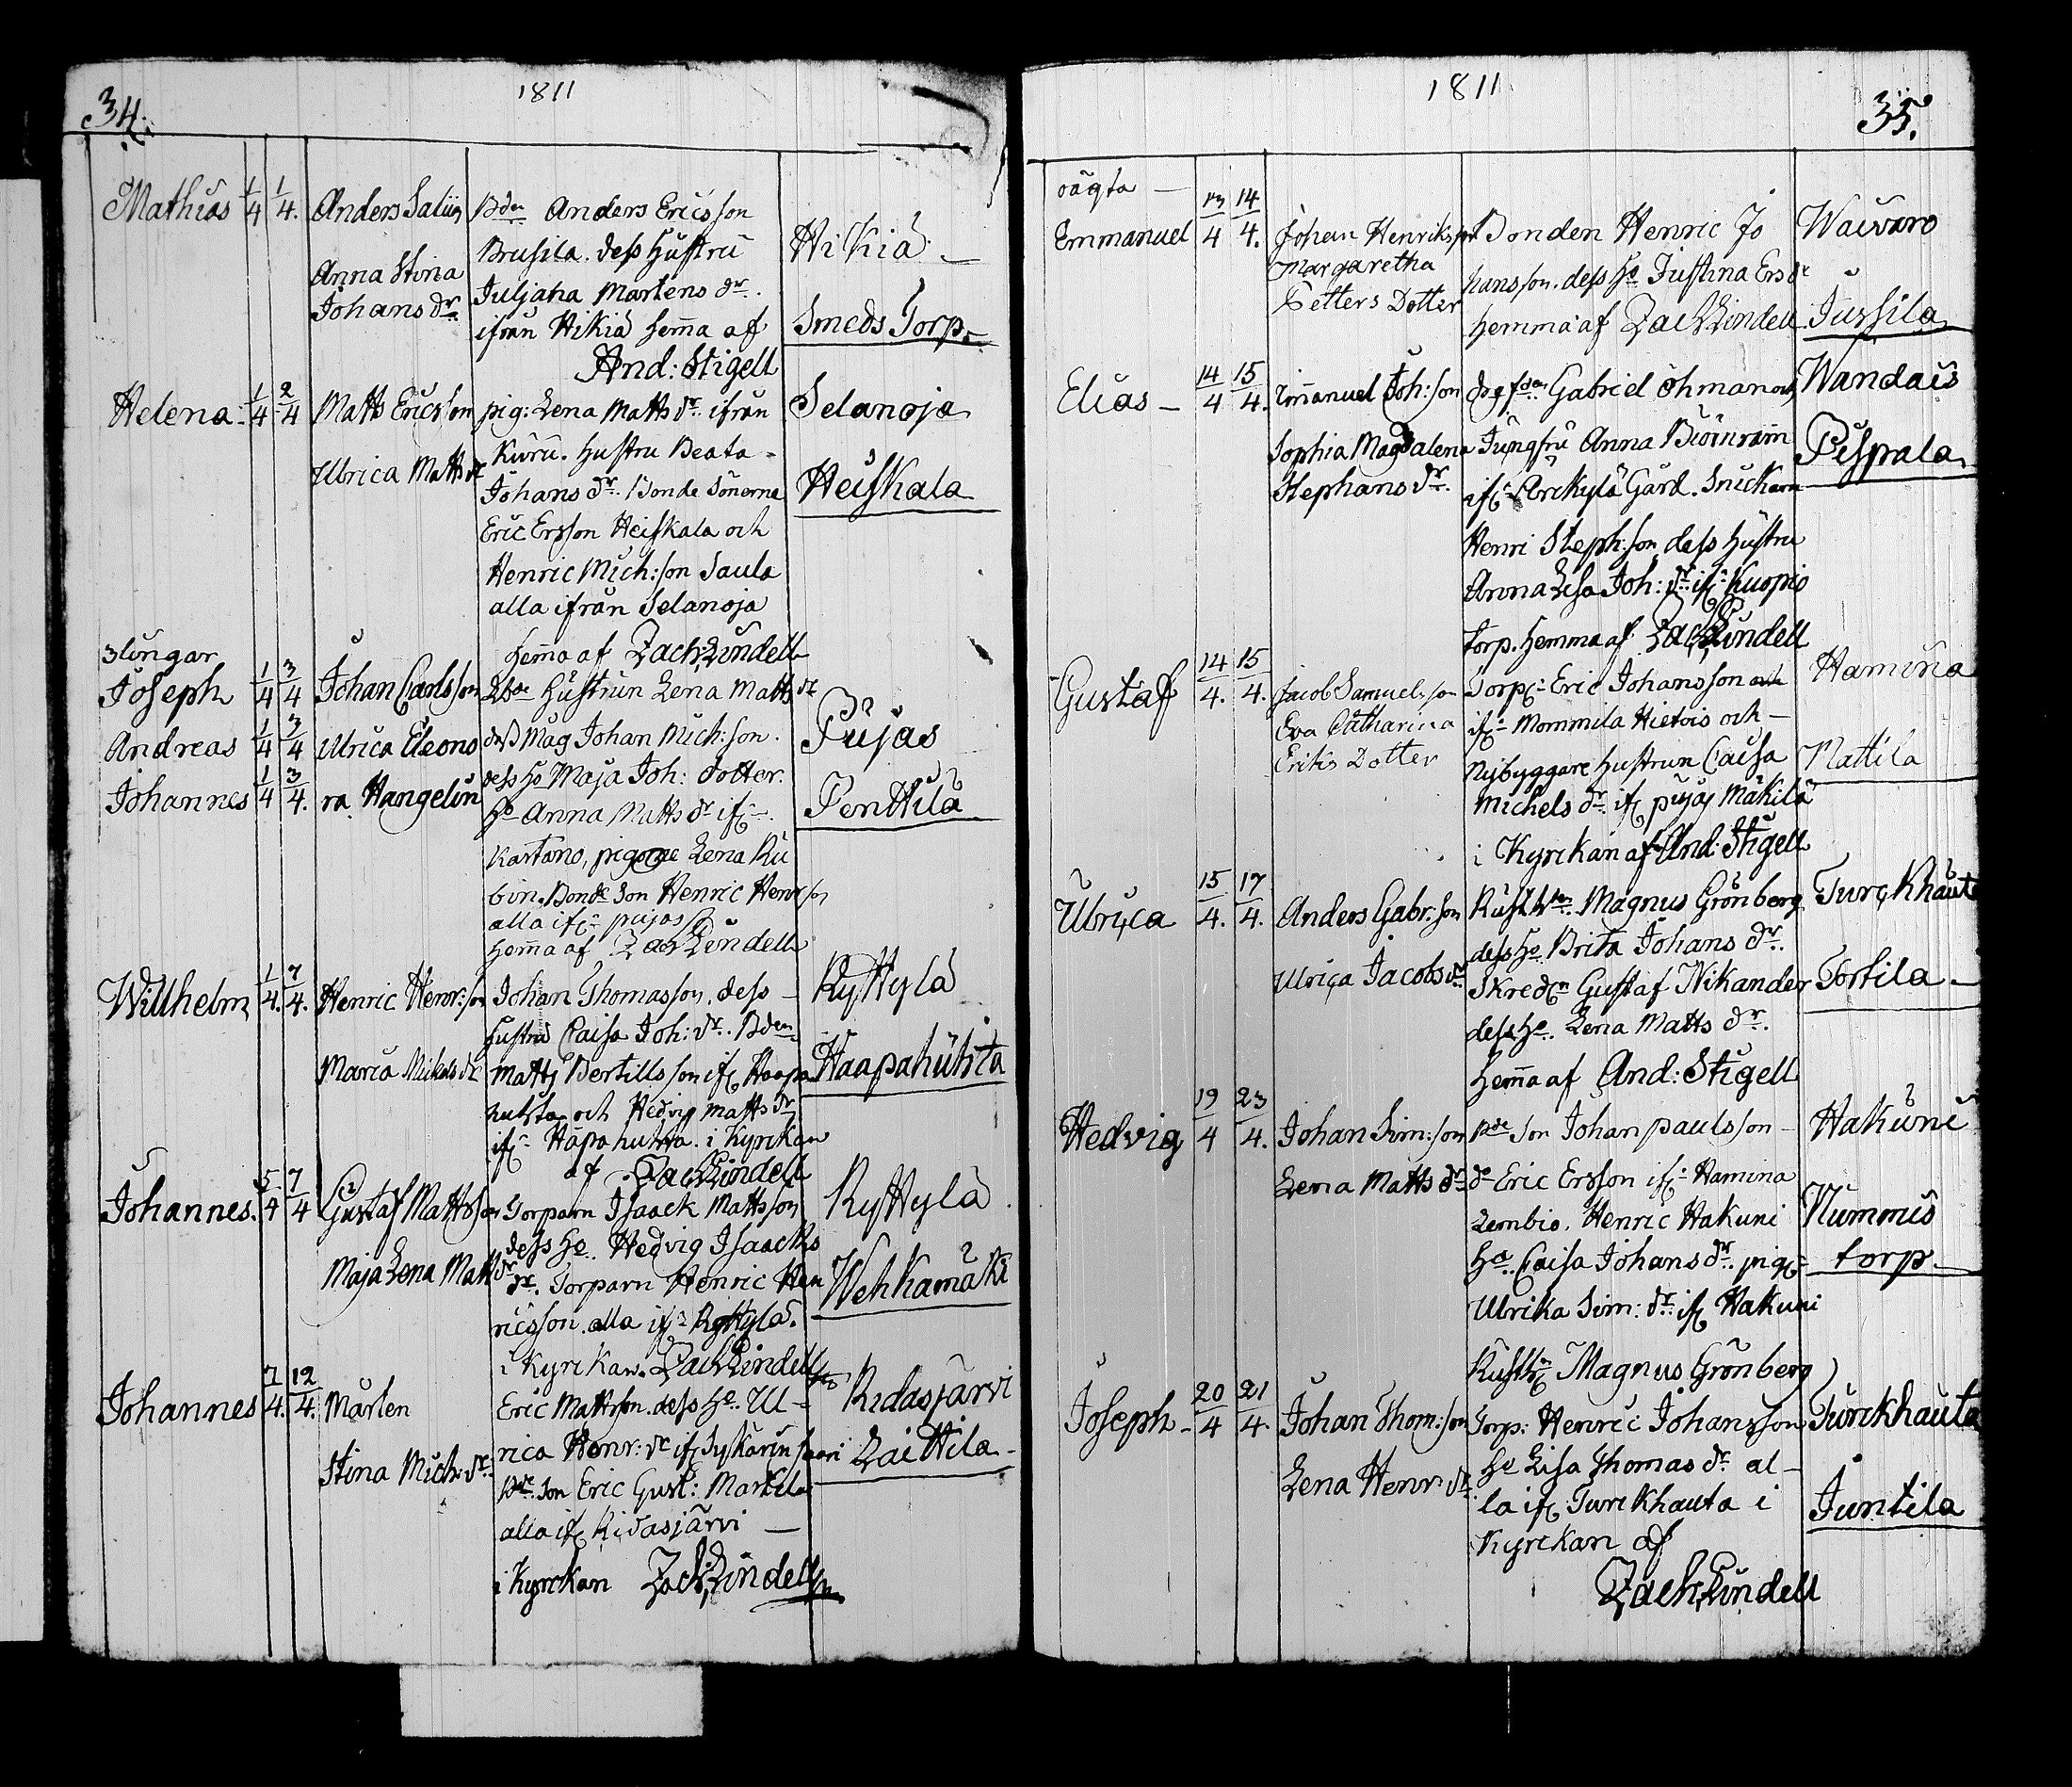 34.
1811
Mathias 1/4 1/4. Anders Saliin Bden Anders Ericsson
Brusila. dess Hustru Hikiä
Anna Stina Juljana Martens dr.
Johans dr. ifrån Hikiä hema af Smeds Torp.
And: Stigell
Helena. 1/4 2/4 Matts Ericsson pig: Lena Matts dr. ifrån Selanoja
Kuru. Hustru Beata
Ulrica Matts dr Johans dr. Bonde Sönerne Heiskala
Eric Ersson Heiskala och
Henric Mich:son Saula
alla ifrån Selanoja
hema af Zach: Lindell
3lingar
Joseph 1/4 3/4 Johan Carlsson Hustrun Lena Matts dr
Andreas 1/4 3/4 Ulrica Eleono dess Måg Johan Mich:son. Pujas
Johannes 1/4 3/4. ra Hangelin dess Ho Maja Joh: dotter. Penttilä
Ho Anna Matts dr if:
Kartano, pigorne Lena Ru
bin. Bonde Son Henric Henr:son
alla if: pujas
hema af Zach Lindell
Willhelm 1/4. 7/4. Henric Henr:son Johan Thomasson, dess Ryttylä
hustru Caisa Joh: dr. Bden
Maria Mickels dr Matts Bertillsson if: Haapa Haapahuhta
huhta och Hedvig Matts dr
if: Hapahuhta. i Kyrckan
af Zach Lindell
Johannes. 5/4 7/4 Gustaf Mattsson Torparn Isaack Mattsson Ryttylä.
dess Ho. Hedvig Isaacks
Maja Lena Matts dr dr. Torparn Henric Hen Wehkamäki
ricsson. alla if: Ryttylä.
i Kyrckan. Zach Lindell
Johannes 7/4. 12/4. Mårten Eric Mattsson. dess Ho. Ul Ridasjärvi
rica Henr: dr if:
Stina Mich: dr. Son Eric Gust: Markila Laittila
alla if: Ridasjärvi
i Kyrckan Zach: Lindell
1811
35.
oägta
Emmanuel 13/4 14/4. Johan Henriksson Bonden Henric Jo Waivaro
Margaretha hansson. dess Ho Justina Ers dr
Petters Dotter hemma af Zach Lindell Jussila
Elias 14/4 15/4. Imanuel Joh:son Gabriel Öhman och Wandais
Sophia Magdalena Jungfru Anna Biörnram Pispala
Stephans dr. if: Erkylä Gård. Snickarn
Henri Steph:son dess hustru
Anna Lisa Joh: dr. if: Kuopio
torp. hemma af Zach Lindell
Gustaf 14/4. 15/4. Jacob Samuelsson Torp: Eric Johansson Hamina
Eva Catharina if: Mommila Hietois och
Eriks Dotter Nybyggare hustrun Caisa Mattila
Michels dr. if: pujas Mäkilä
i Kyrckan af And: Stigell
Ulrica 15/4. 17/4. Anders Gabr:son Rusth:n Magnus Grönberg Turckhauta
dess Ho Brita Johans dr.
Ulrica Jacobs dr Skred:n Gustaf Nikander Tortila
dess Ho. Lena Matts dr.
hema af And: Stigell
Hedvig 19/4 23/4. Johan Sim:son Bde Son Johan Paulsson Hakuni
Lena Matts dr do Eric Ersson if: Hamina
Lembio. Henric Hakuni Nummis
Ho. Caisa Johans dr. pig: torp
Ulrika Sim: dr. if: Hakuni
Rusth:n Magnus Grönberg
Joseph 20/4 21/4. Johan Thom:son Torp: Henric Johansson Turckhauta
Ho Lisa Thomas dr al
Lena Henr: dr la if: Turckhauta i Juntila
Kyrckan af
Zach: Lindell